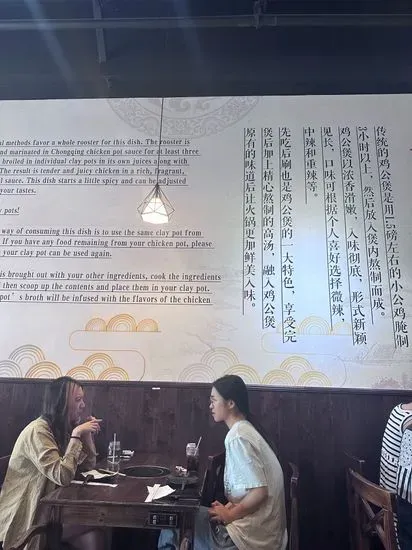 methods favor a whole rooster for this dish. The rooster is
and marinated in Chongqing chicken pot sauce for at least three
broiled in individual clay pots in its own juices along with
The result is tender and juicy chicken in a rich, fragrant,
sauce. This dish starts a little spicy and can be adjusted
your tastes.
pots!
way of consuming this dish is to use the same clay pot from
If you have any food remaining from your chicken pot, please
your clay pot can be used again.
is brought out with your other ingredients, cook the ingredients
then scoop up the contents and place them in your clay pot.
pot's broth will be infused with the flavors of the chicken
传统的鸡公煲是用1.5磅左右的小公鸡腌制
3小时以上，然后放入煲内熬制而成。
鸡公煲以浓香滑嫩，入味彻底，形式新颖
见长，口味可根据个人喜好选择微辣，
中辣和重辣等。
先吃后涮也是鸡公煲的一大特色，享受完
煲后加上精心熬制的高汤，融入鸡公煲
原有的味道后让火锅更加鲜美入味。